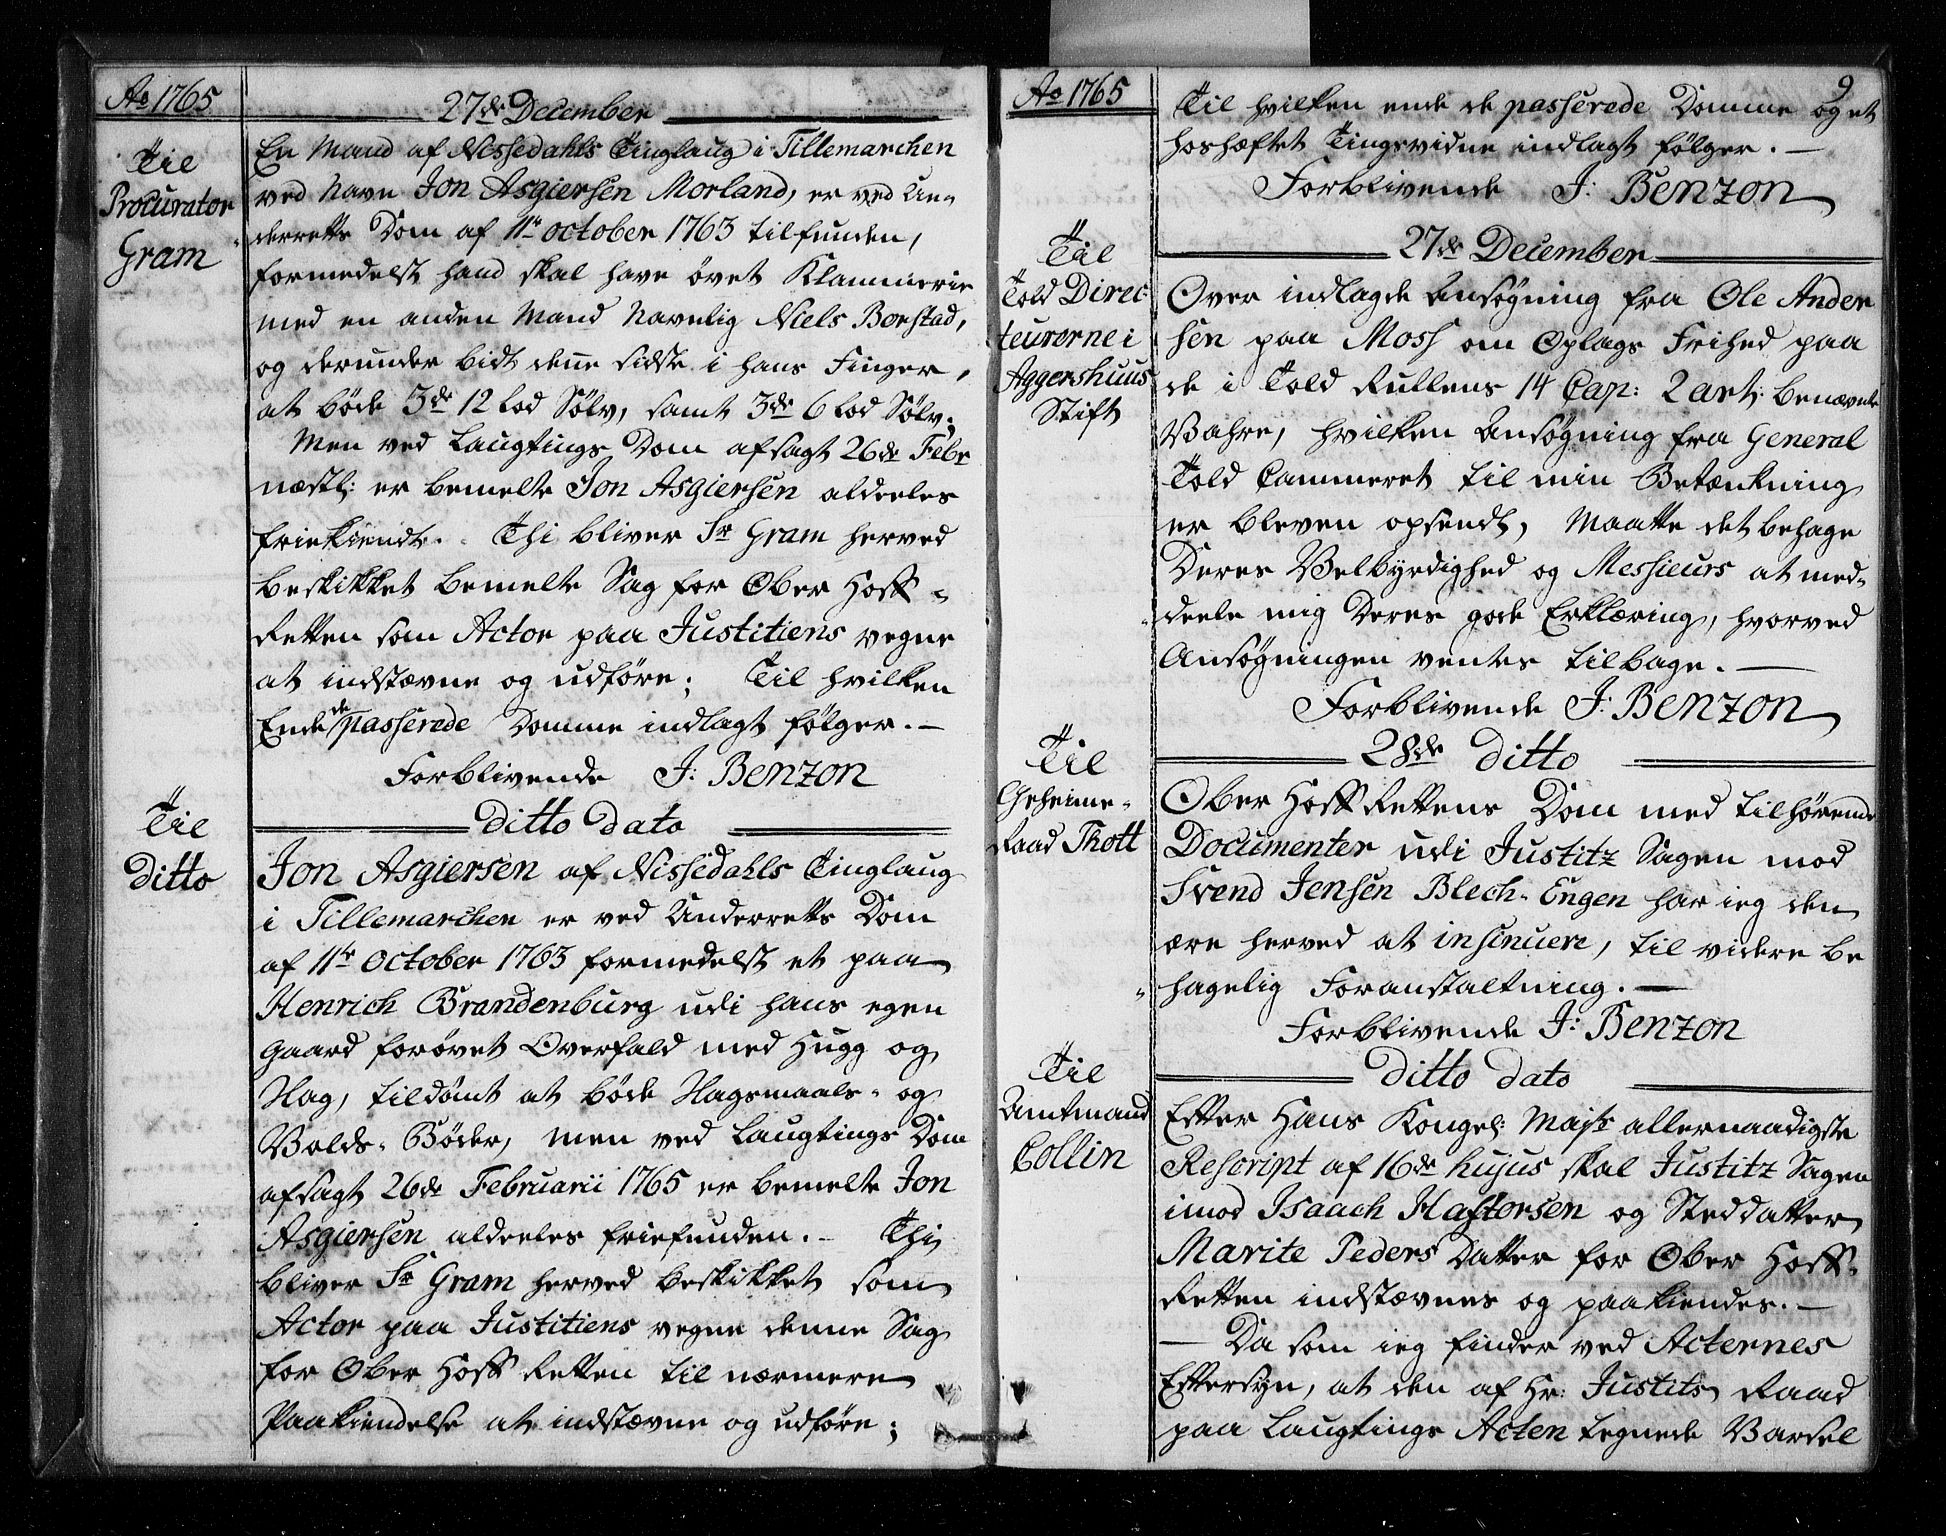 Ao 1765
27de December
Til
Procurator
Gram
En Mand af Nissedahls Tinglaug i Tillemarchen
ved Navn Jon Asgiersen Morland, er ved Un-
derretts Dom af 11te october 1763 tilfunden,
formedelst hand skal have øvet Klammerie
med en anden Mand Navnlig Niels Borstad,
og derunder bidt denne sidste i hans Finger,
at bøde 3de 12 Lod Sølv, samt 3de 6 Lod Sølv;
Men ved Laugtings Dom afsagt 26de Febr
næstl: er bemelte Jon Asgiersen aldeeles
friekiendt. Thi bliver Sr Gram herved
beskikket bemelte Sag for Ober Hoff-
Retten som Actor paa Justitiens vegne
at indstævne og udføre; Til hvilken
Ende de passerede Domme indlagt følger. —
Forblivende J: Benzon
Til
ditto
ditto dato
Jon Asgiersen af Nissedahls Tinglaug
i Tillemarchen er ved Underretts Dom
af 11te October 1763 formedelst et paa
Henrich Brandenburg udi hans egen
Gaard forøvet Overfald med Hugg og
Slag, tildømt at bøde Slagsmaals- og
Volds-Bøder, men ved Laugtings Dom
afsagt 26de Februarii 1765 er bemelte Jon
Asgiersen aldeeles friefunden. - Thi
bliver Sr Gram herved beskikket som
Actor paa Justitiens vegne denne Sag
for Ober Hoff Retten til nærmere
Paakiendelse at indstævne og udføre;
Ao 1765
9
Til hvilken ende de passerede Domme og et
hoshæftet Tingsvidne indlagt følger. —
Forblivende J: Benzon
27de December
Til
Told Direc-
teurerne i
Aggershuus
Stift
Over indlagde Ansøgning fra Ole Ander
sen paa Moss om Oplags Frihed paa
de i Told Rullens 14 Cap: 2 art: benævnte
Vahre, hvilken Ansøgning fra General
Told Cammeret til min Betænkning
er bleven opsendt, Maatte det behage
Deres Velbyrdighed og Messieurs at med-
deele mig Deres gode Erklæring, hvorved
Ansøgningen ventes tilbage. —
Forblivende J: Benzon
28de ditto
Til
Geheime-
Raad Thott
Ober Hoff Rettens Dom med tilhørende
Documenter udi Justitz Sagen mod
Svend Jensen Blech-Engen har ieg den
ære herved at insinuere, til videre be
hagelig Foranstaltning. —
Forblivende J: Benzon
ditto dato
Til
Amtmand
Collin
Efter Hans Kongel: Majts allernaadigste
Rescript af 16de hujus skal Justitz Sagen
imod Isaach Haftorsen og Steddatter
Marite Peders Datter for Ober Hoff-
Retten indstævnes og paakiendes. —
— Da som ieg finder ved Acternes
Eftersyn, at den af Hr: Justits Raad
paa Laugtings Acten tegnede Varsel